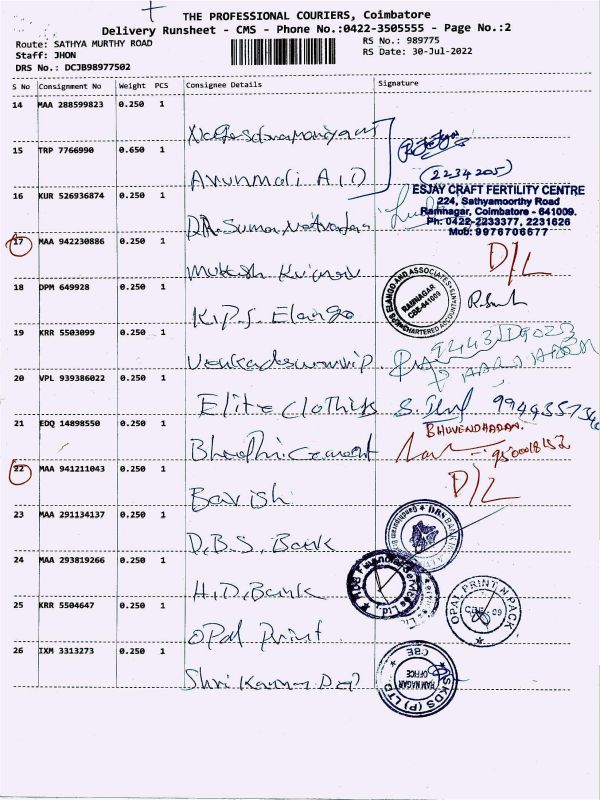 THE PROFESSIONAL COURIERS, Coimbatore
Delivery Runsheet - CMS - Phone No.:0422-3505555 - Page No.:2
Route: SATHYA MURTHY ROAD
RS No.: 989775
Staff: JHON
RS Date: 30-Jul-2022
DRS No.: DCJB98977502
S No Consignment No Weight PCS Consignee Details Signature
14 MAA 288599823 0.250 1
15 TRP 7766990 0.650 1
Arunmali A.I.D
(2234205)
16 KUR 526936874 0.250 1
DR. Suma Natrajan
ESJAY CRAFT FERTILITY CENTRE
224, Sathyamoorthy Road
Ramnagar, Coimbatore - 641009.
Ph: 0422-2233377, 2231626
Mob: 9976706677
17 MAA 942230886 0.250 1
Mukesh Kumar
D/L
18 DPM 649928 0.250 1
K.P.S. Elango
S. ELANGO AND ASSOCIATES
RAMNAGAR
CBE-641009
CHARTERED ACCOUNTANTS
19 KRR 5503099 0.250 1
20 VPL 939386022 0.250 1
Elite Clothings
21 EDQ 14898550 0.250 1
BHUVENDHARAN.
22 MAA 941211043 0.250 1
Bavish
D/L
23 MAA 291134137 0.250 1
D.B.S. Bank
DBS BANK
24 MAA 293819266 0.250 1
H.D. Bank
HDB Financial Services Ltd.
25 KRR 5504647 0.250 1
Opal Print
OPAL PRINT N PACK
CBE - 09
26 IXM 3313273 0.250 1
SKDS (P) LTD
RAM NAGAR
OFFICE
CBE